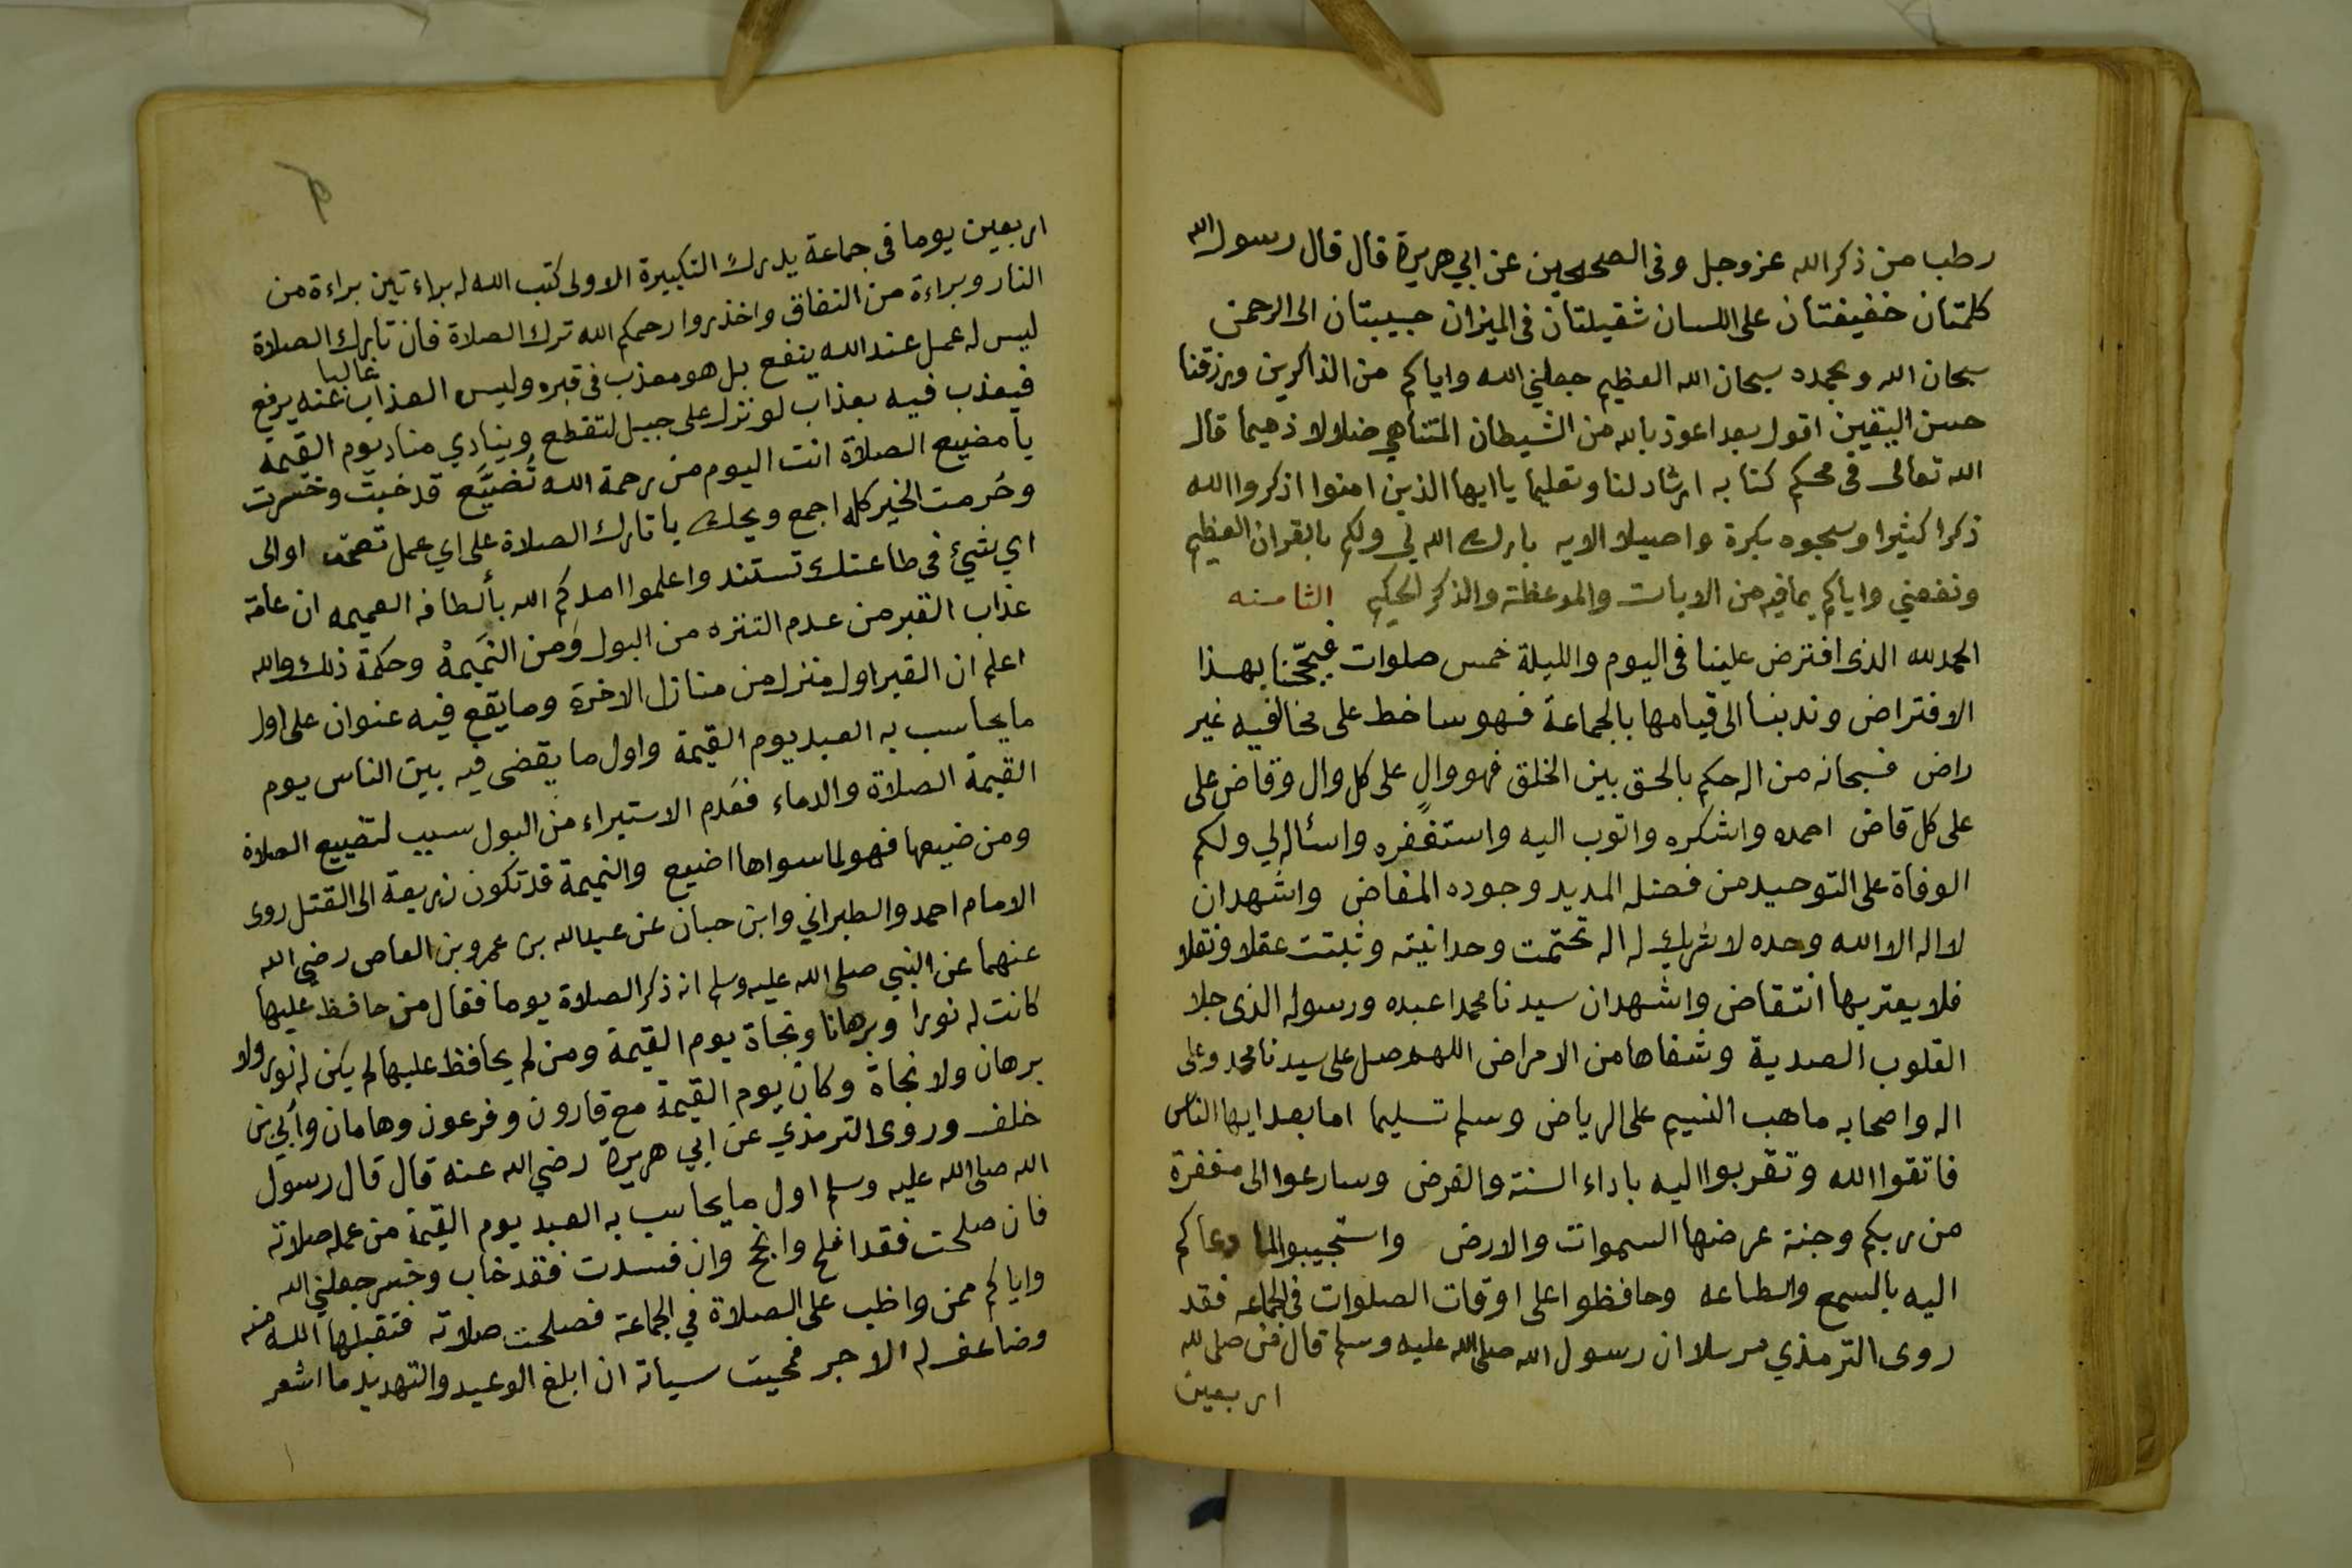 رطب من ذكر الله عز وجل وفى الصحيحين عن ابي هريرة قال قال رسول الله
كلمتان خفيفتان على اللسان ثقيلتان فى الميزان حبيبتان الى الرحمن
سبحان الله وبحمده سبحان الله العظيم جعلني الله واياكم من الذاكرين ورزقنا
حسن اليقين اقول بعد اعوذ بالله من الشيطان المتناهي ضلالا ذميما قال
الله تعالى فى محكم كتابه ارشاد لنا وتعليما يا ايها الذين امنوا اذكروا الله
ذكرا كثيرا وسبحوه بكرة واصيلا الايه بارك الله لي ولكم بالقران العظيم
ونفعني واياكم بما فيه من الايات والموعظة والذكر الحكيم الثامنه
الحمد لله الذى افترض علينا فى اليوم والليلة خمس صلوات بهذا
الافتراض وندبنا الى قيامها بالجماعة فهو ساخط على مخالفيه غير
راض فسبحانه من اله حكم بالحق بين الخلق فهو والٍ على كل وال وقاض على
على كل قاض احمده واشكره واتوب اليه واستغفره واسأله لي ولكم
الوفاة على التوحيد من فضله المديد وجوده المفاض واشهد ان
لا اله الا الله وحده لا شريك له اله تحتمت وحدانيته وثبتت عقلا ونقلا
فلا يعتريها انتقاض واشهد ان سيدنا محمدا عبده ورسوله الذى جلا
القلوب الصدية وشفاها من الامراض اللهم صل على سيدنا محمد وعلى
اله واصحابه ما هب النسيم على الرياض وسلم تسليما اما بعد ايها الناس
فاتقوا الله وتقربوا اليه باداء السنة والفرض وسارعوا الى مغفرة
من ربكم وجنة عرضها السموات والارض واستجيبوا لما دعاكم
اليه بالسمع والطاعه وحافظوا على اوقات الصلوات فى الجماعه فقد
روى الترمذي مرسلا ان رسول الله صلى الله عليه وسلم قال من صلى لله
اربعين
اربعين يوما فى جماعة يدرك التكبيرة الاولى كتب الله له براءتين براءة من
النار وبراءة من النفاق واحذروا رحمكم الله ترك الصلاة فان تارك الصلاة
ليس له عمل عند الله ينفع بل هو معذب فى قبره وليس العذاب غالبا عنه يرفع
فيعذب فيه بعذاب لو نزل على جبل لتقطع وينادي مناد يوم القيمة
يا مضيع الصلاة انت اليوم من رحمة الله تُضَيَّع قد خبت وخسرت
وحُرمت الخير كله اجمع ويحك يا تارك الصلاة على اي عمل او الى
اي شيئ فى طاعتك تستند واعلموا امدكم الله بألطافه العميمه ان عامة
عذاب القبر من عدم التنزه من البول ومن النَمِيمة وحكمة ذلك والله
اعلم ان القبر اول منزل من منازل الاخرة وما يقع فيه عنوان على اول
ما يحاسب به العبد يوم القيمة واول ما يقضى فيه بين الناس يوم
القيمة الصلاة والدماء فعدم الاستبراء من البول سبب لتضييع الصلاة
ومن ضيعها فهو لما سواها اضيع والنميمة قد تكون زريعة الى القتل روى
الامام احمد والطبراني وابن حبان عن عبد الله بن عمرو بن العاص رضي الله
عنهما عن النبي صلى الله عليه وسلم انه ذكر الصلاة يوما فقال من حافظ عليها
كانت له نورا وبرهانا ونجاة يوم القيمة ومن لم يحافظ عليها لم يكن له نور ولا
برهان ولا نجاة وكان يوم القيمة مع قارون وفرعون وهامان وأبي بن
خلف وروى الترمذي عن ابي هريرة رضي الله عنه قال قال رسول
الله صلى الله عليه وسلم اول ما يحاسب به العبد يوم القيمة من عمله صلاته
فان صلحت فقد افلح وانجح وان فسدت فقد خاب وخسر جعلني الله
واياكم ممن واظب على الصلاة في الجماعة فصلحت صلاته فتقبلها الله منه
وضاعف له الاجر فمحيت سياته ان ابلغ الوعيد والتهديد ما اشعر